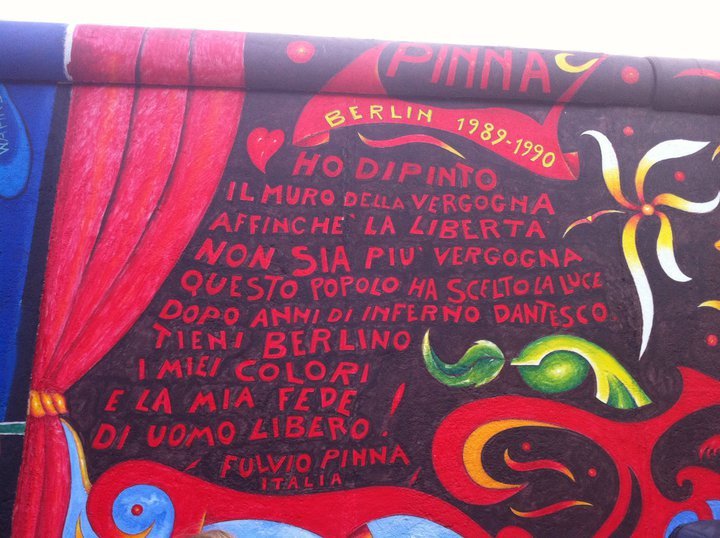 PINNA
BERLIN 1989-1990
HO DIPINTO
IL MURO DELLA VERGOGNA
AFFINCHE' LA LIBERTA'
NON SIA PIU' VERGOGNA
QUESTO POPOLO HA SCELTO LA LUCE
DOPO ANNI DI INFERNO DANTESCO
TIENI BERLINO
I MIEI COLORI
E LA MIA FEDE
DI UOMO LIBERO!
FULVIO PINNA
ITALIA